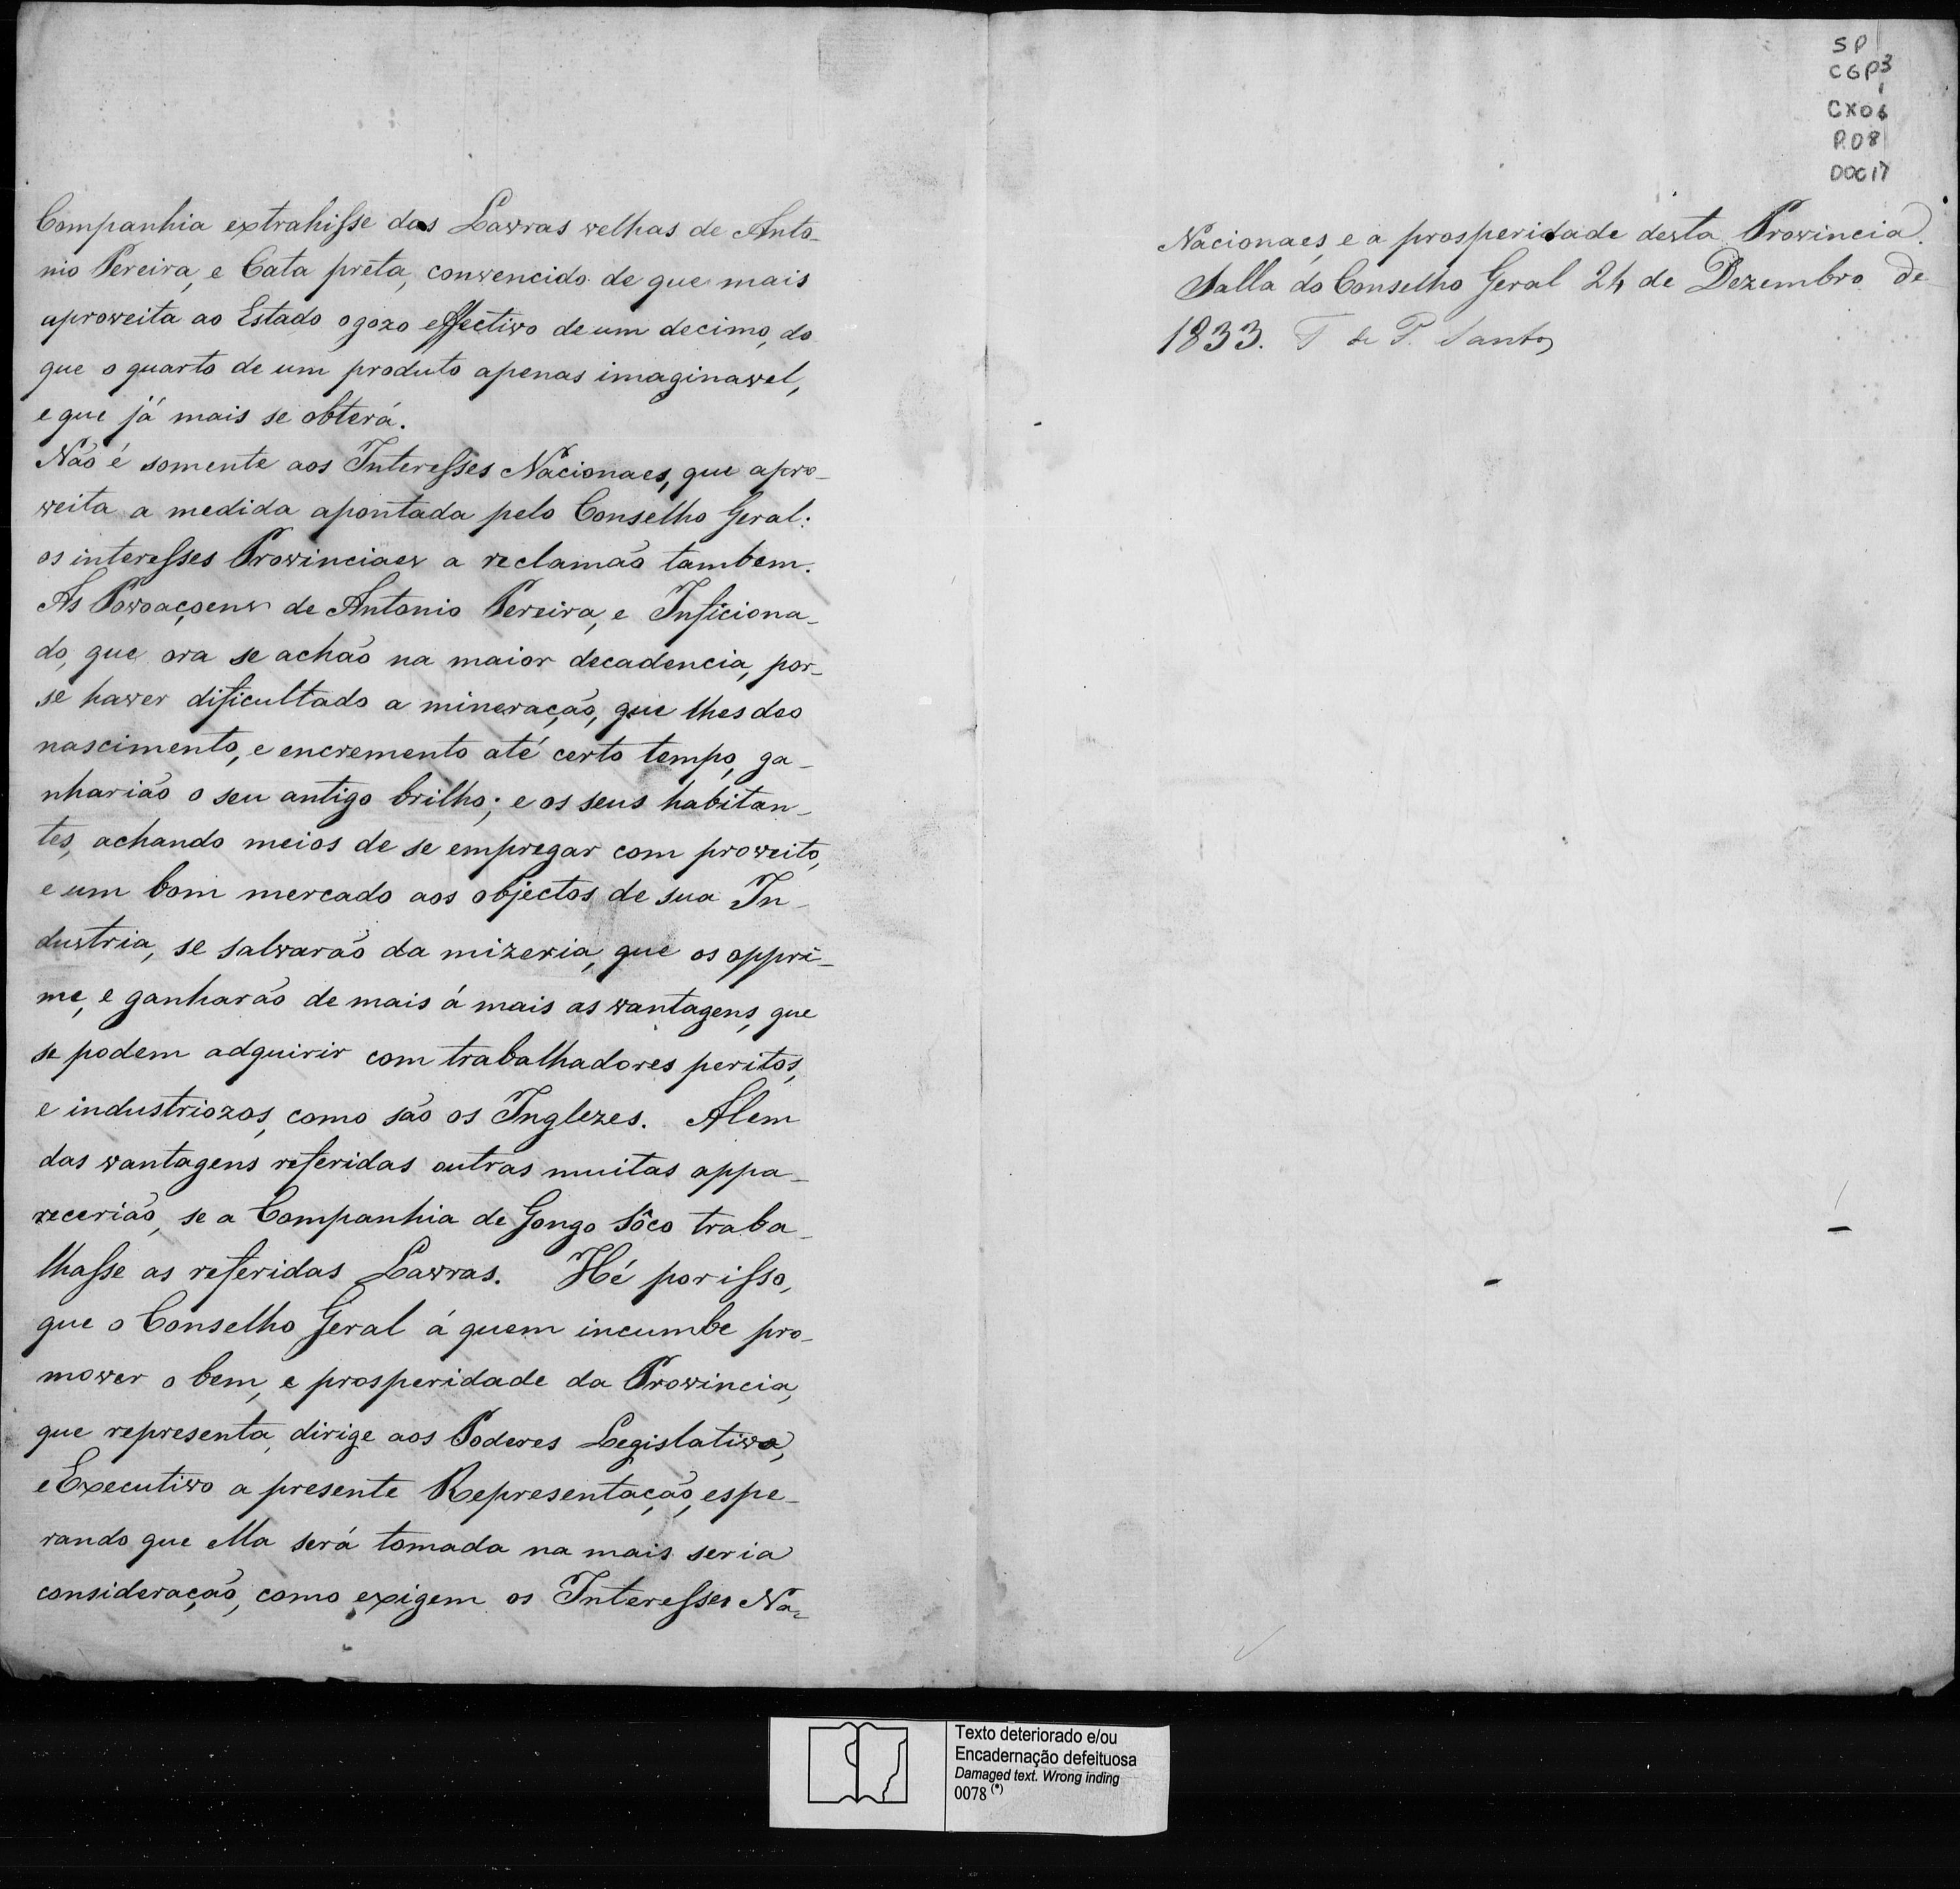 Companhia extrahisse das Lavras velhas de Anto-
nio Pereira, e Cata preta, convencido de que mais
aproveita ao Estado o gozo effectivo de um decimo, do
que o quarto de um produto apenas imaginavel,
e que já mais se obterá.
Não é somente aos Interesses Nacionaes, que apro-
veita a medida apontada pelo Conselho Geral:
os interesses Provinciaes a reclamão tambem.
As Povoaçoens de Antonio Pereira, e Inficiona-
do, que ora se achão na maior decadencia, por-
se haver dificultado a mineração, que lhes deo
nascimento, e encremento até certo tempo, ga-
nharião o seu antigo brilho; e os seus habitan-
tes, achando meios de se empregar com proveito,
e um bom mercado aos objectos de sua In-
dustria, se salvarão da mizeria, que os oppri-
me, e ganharão de mais á mais as vantagens, que
se podem adquirir com trabalhadores peritos,
e industriozos, como são os Inglezes. Alem
das vantagens referidas outras muitas appa-
recerião, se a Companhia de Gongo Sôco traba-
lhasse as referidas Lavras. Hé por isso,
que o Conselho Geral á quem incumbe pro-
mover o bem, e prosperidade da Provincia,
que representa, dirige aos Poderes Legislativo,
e Executivo a presente Representação, espe-
rando que ella será tomada na mais seria
consideração, como exigem os Interesses Na=
SP
CGP3
1
CX06
P.08
DOC17
Nacionaes, e a prosperidade desta Provincia.
Salla do Conselho Geral 24 de Dezembro de
1833. T de P. Santos
Texto deteriorado e/ou
Encadernação defeituosa
Damaged text. Wrong inding
0078 (*)